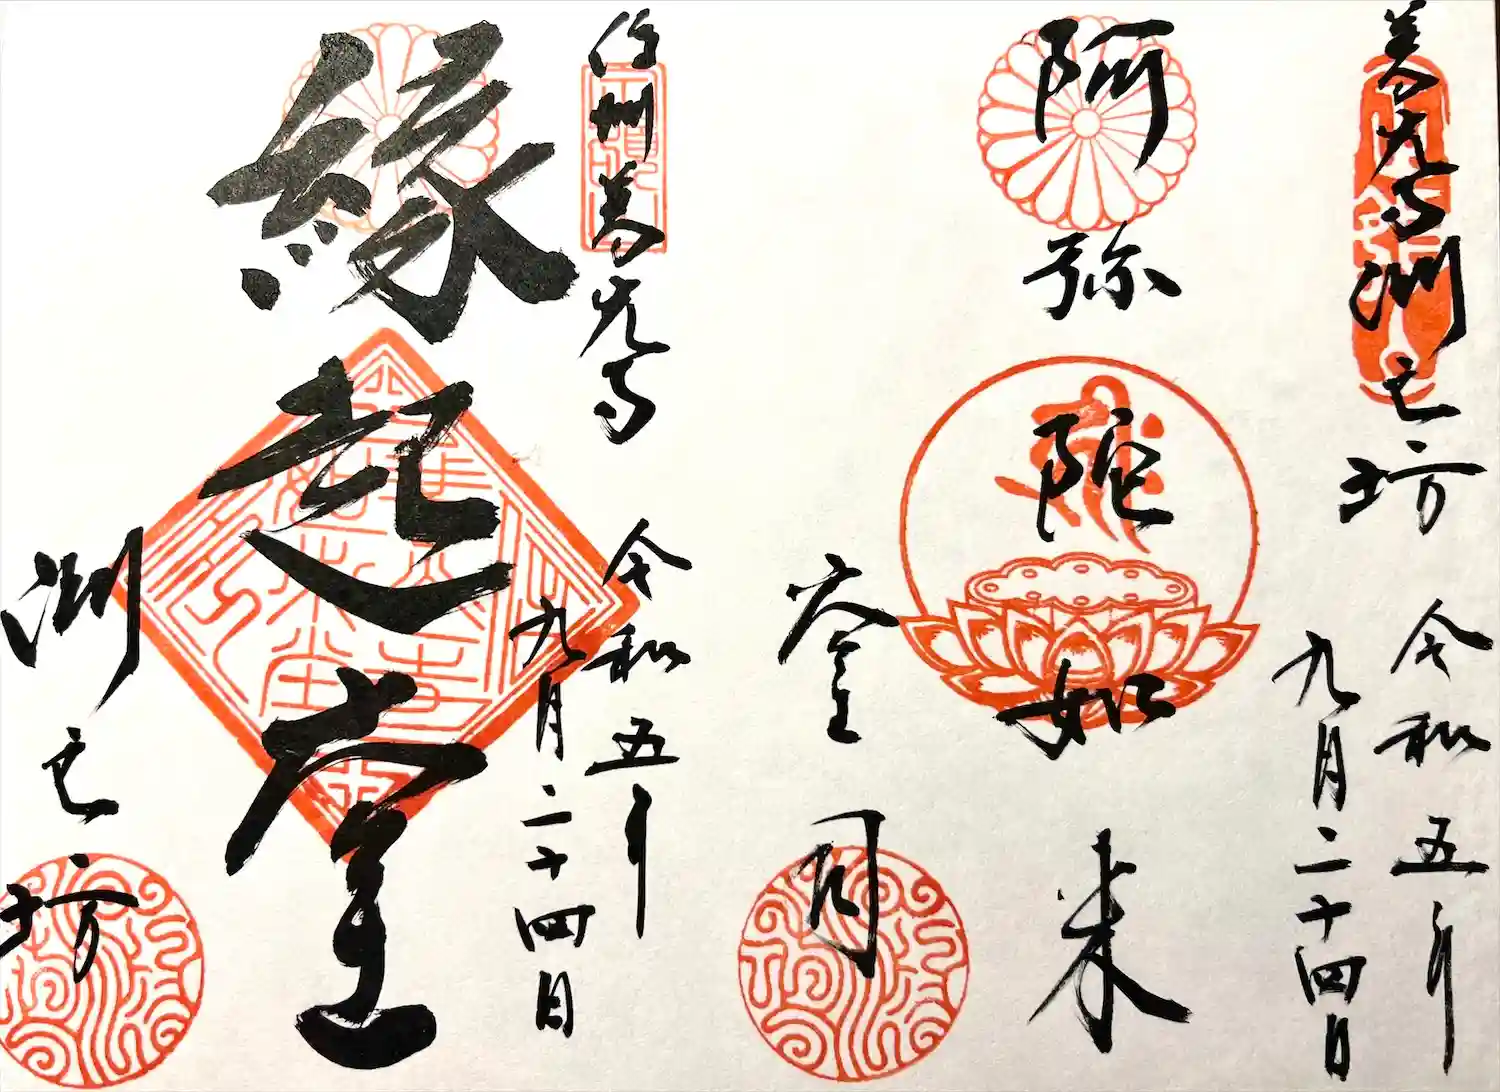 善光寺淵之坊
令和五年
九月二十四日
阿弥陀如来
信州善光寺
令和五年
九月二十四日
縁起堂
淵之坊